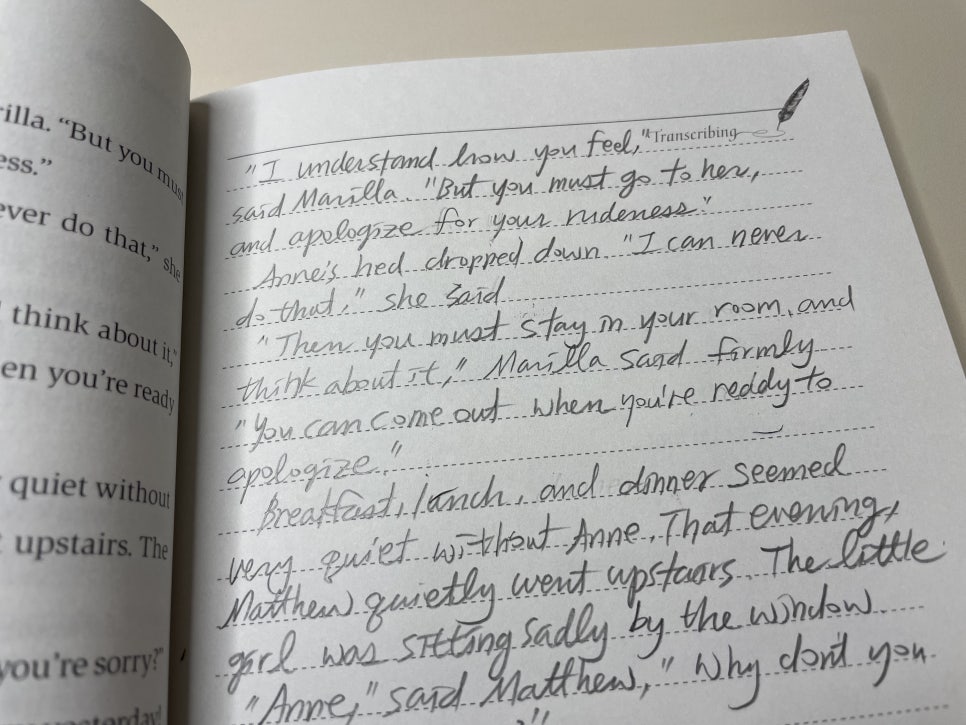 rilla. "But you mus
ess."
ever do that," she
think about it,"
en you're ready
quiet without
upstairs. The
you're sorry?"
yesterday!
Transcribing
"I understand how you feel,"
said Marilla. "But you must go to her,
and apologize for your rudeness."
Anne's hed dropped down. "I can never
do that," she said
"Then you must stay in your room, and
think about it," Marilla said firmly
"You can come out when you're reddy to
apologize."
Breatfast, lunch, and dinner seemed
very quiet without Anne. That evening,
Matthew quietly went upstairs. The little
girl was sitting sadly by the window.
"Anne," said Matthew, "Why don't you